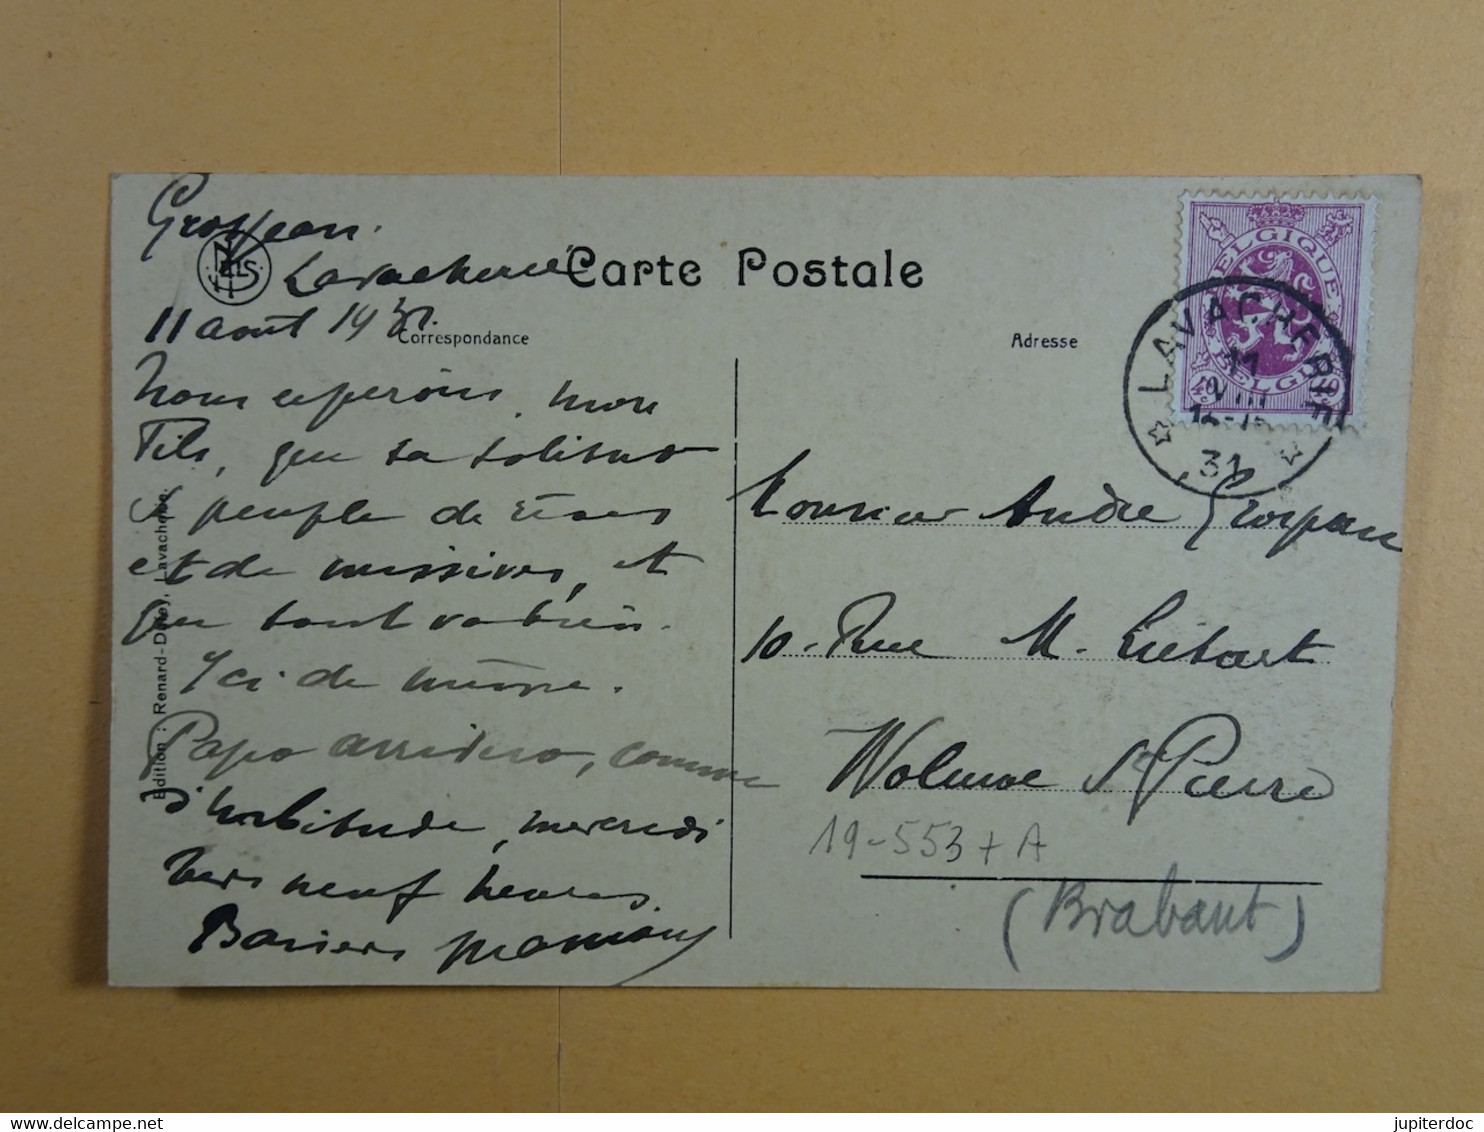 Grosjean.
Lavacherie
11 août 1931.
Carte Postale
Correspondance
Adresse
NELS
BELGIQUE
BELGIË
LAVACHERIE
11
VIII
31
Nous espérons, mon
Fils, que ta solitude
se peuple de
et de missives, et
que tout va bien.
Ici de même.
Papa arrivera, comme
d'habitude, mercredi
vers neuf heures.
Baisers maman
Edition : Renard-Dday, Lavacherie.
Monsieur André Grosjean
10. Rue M. Liétart
Woluwe St Pierre
19-553 + A
(Brabant)
jupiterdoc